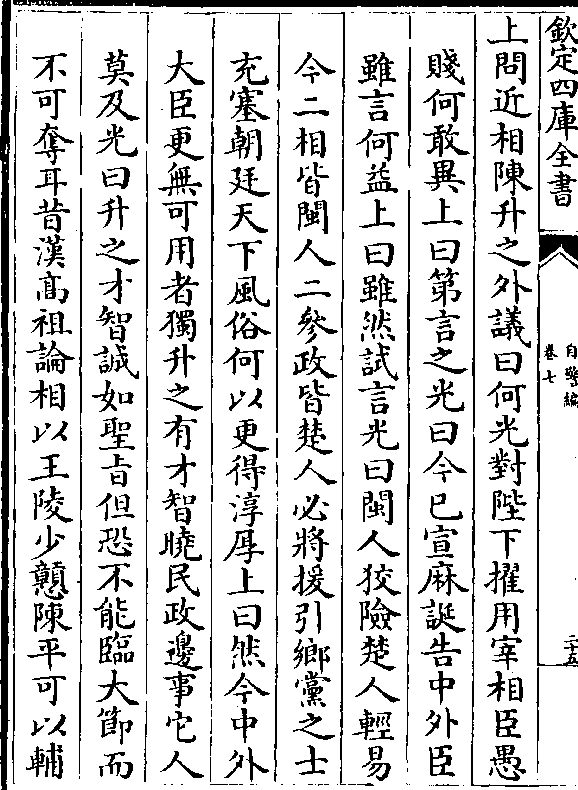 欽定四庫全書
自警編
卷七
二十五
上問近相陳升之外議曰何光對陛下擢用宰相臣愚
賤何敢異上曰第言之光曰今已宣麻誕告中外臣
雖言何益上曰雖然試言光曰閩人狡險楚人輕易
今二相皆閩人二參政皆楚人必將援引鄉黨之士
充塞朝廷天下風俗何以更得淳厚上曰然今中外
大臣更無可用者獨升之有才智曉民政邊事它人
莫及光曰升之才智誠如聖旨但恐不能臨大節而
不可奪耳昔漢髙祖論相以王陵少戅陳平可以輔